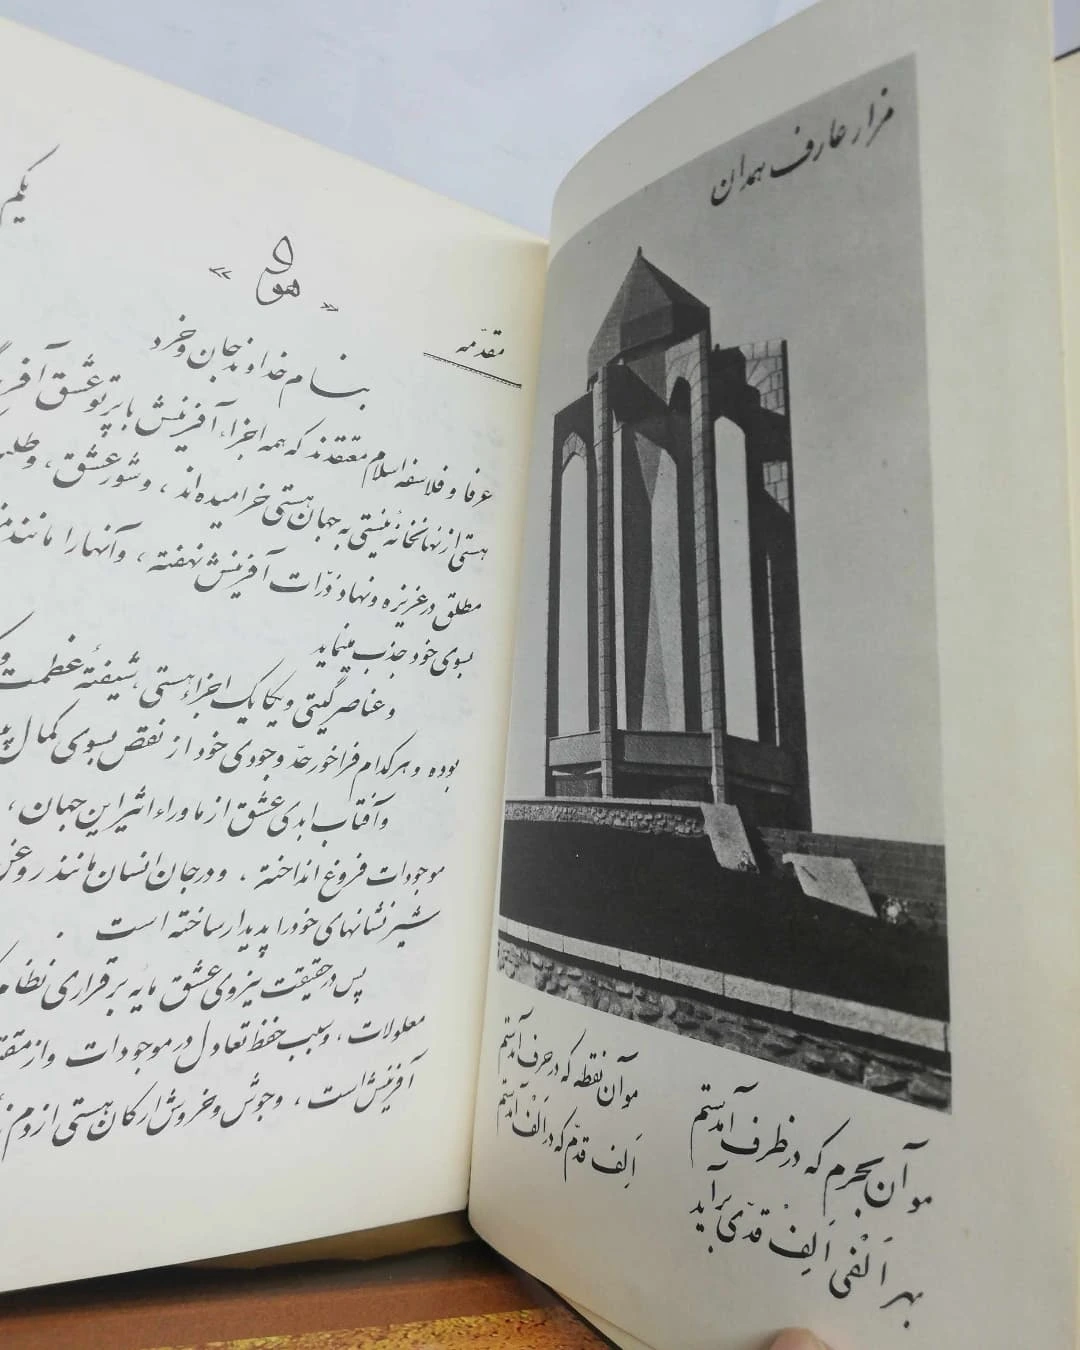 مزار عارف همدان
مو آن بحرم که در ظرف آمدستم
مو آن نقطه که در حرف آمدستم
بهر اَلْفی اَلِفْ قدّی برآید
اَلِف قدّم که در اَلْف آمدستم
مقدّمه
« هو »
بنام خداوند جان و خرد
عرفا و فلاسفه اسلام معتقدند که همه اجزاء آفرینش با پرتو عشق
هستی از نهانخانهٔ نیستی به جهان هستی خرامیده‌اند، و شور عشق، و
مطلق در غریزه و نهاد ذرّات آفرینش نهفته، و آنها را مانند
بسوی خود جذب مینماید
و عناصر گیتی و یکایک اجزاء هستی، شیفتهٔ عظمت
بوده و هر کدام فراخور حدّ وجودی خود از نقص بسوی کمال
و آفتاب ابدی عشق از ماوراء اثیر این جهان،
موجودات فروغ انداخته، و در جان انسان مانند
شیر نشانهای خود را پدیدار ساخته است.
پس در حقیقت نیروی عشق مایه برقراری نظام
معلولات، و سبب حفظ تعادل در موجودات و از
آفرینش است، و جوش و خروش ارکان هستی از دم